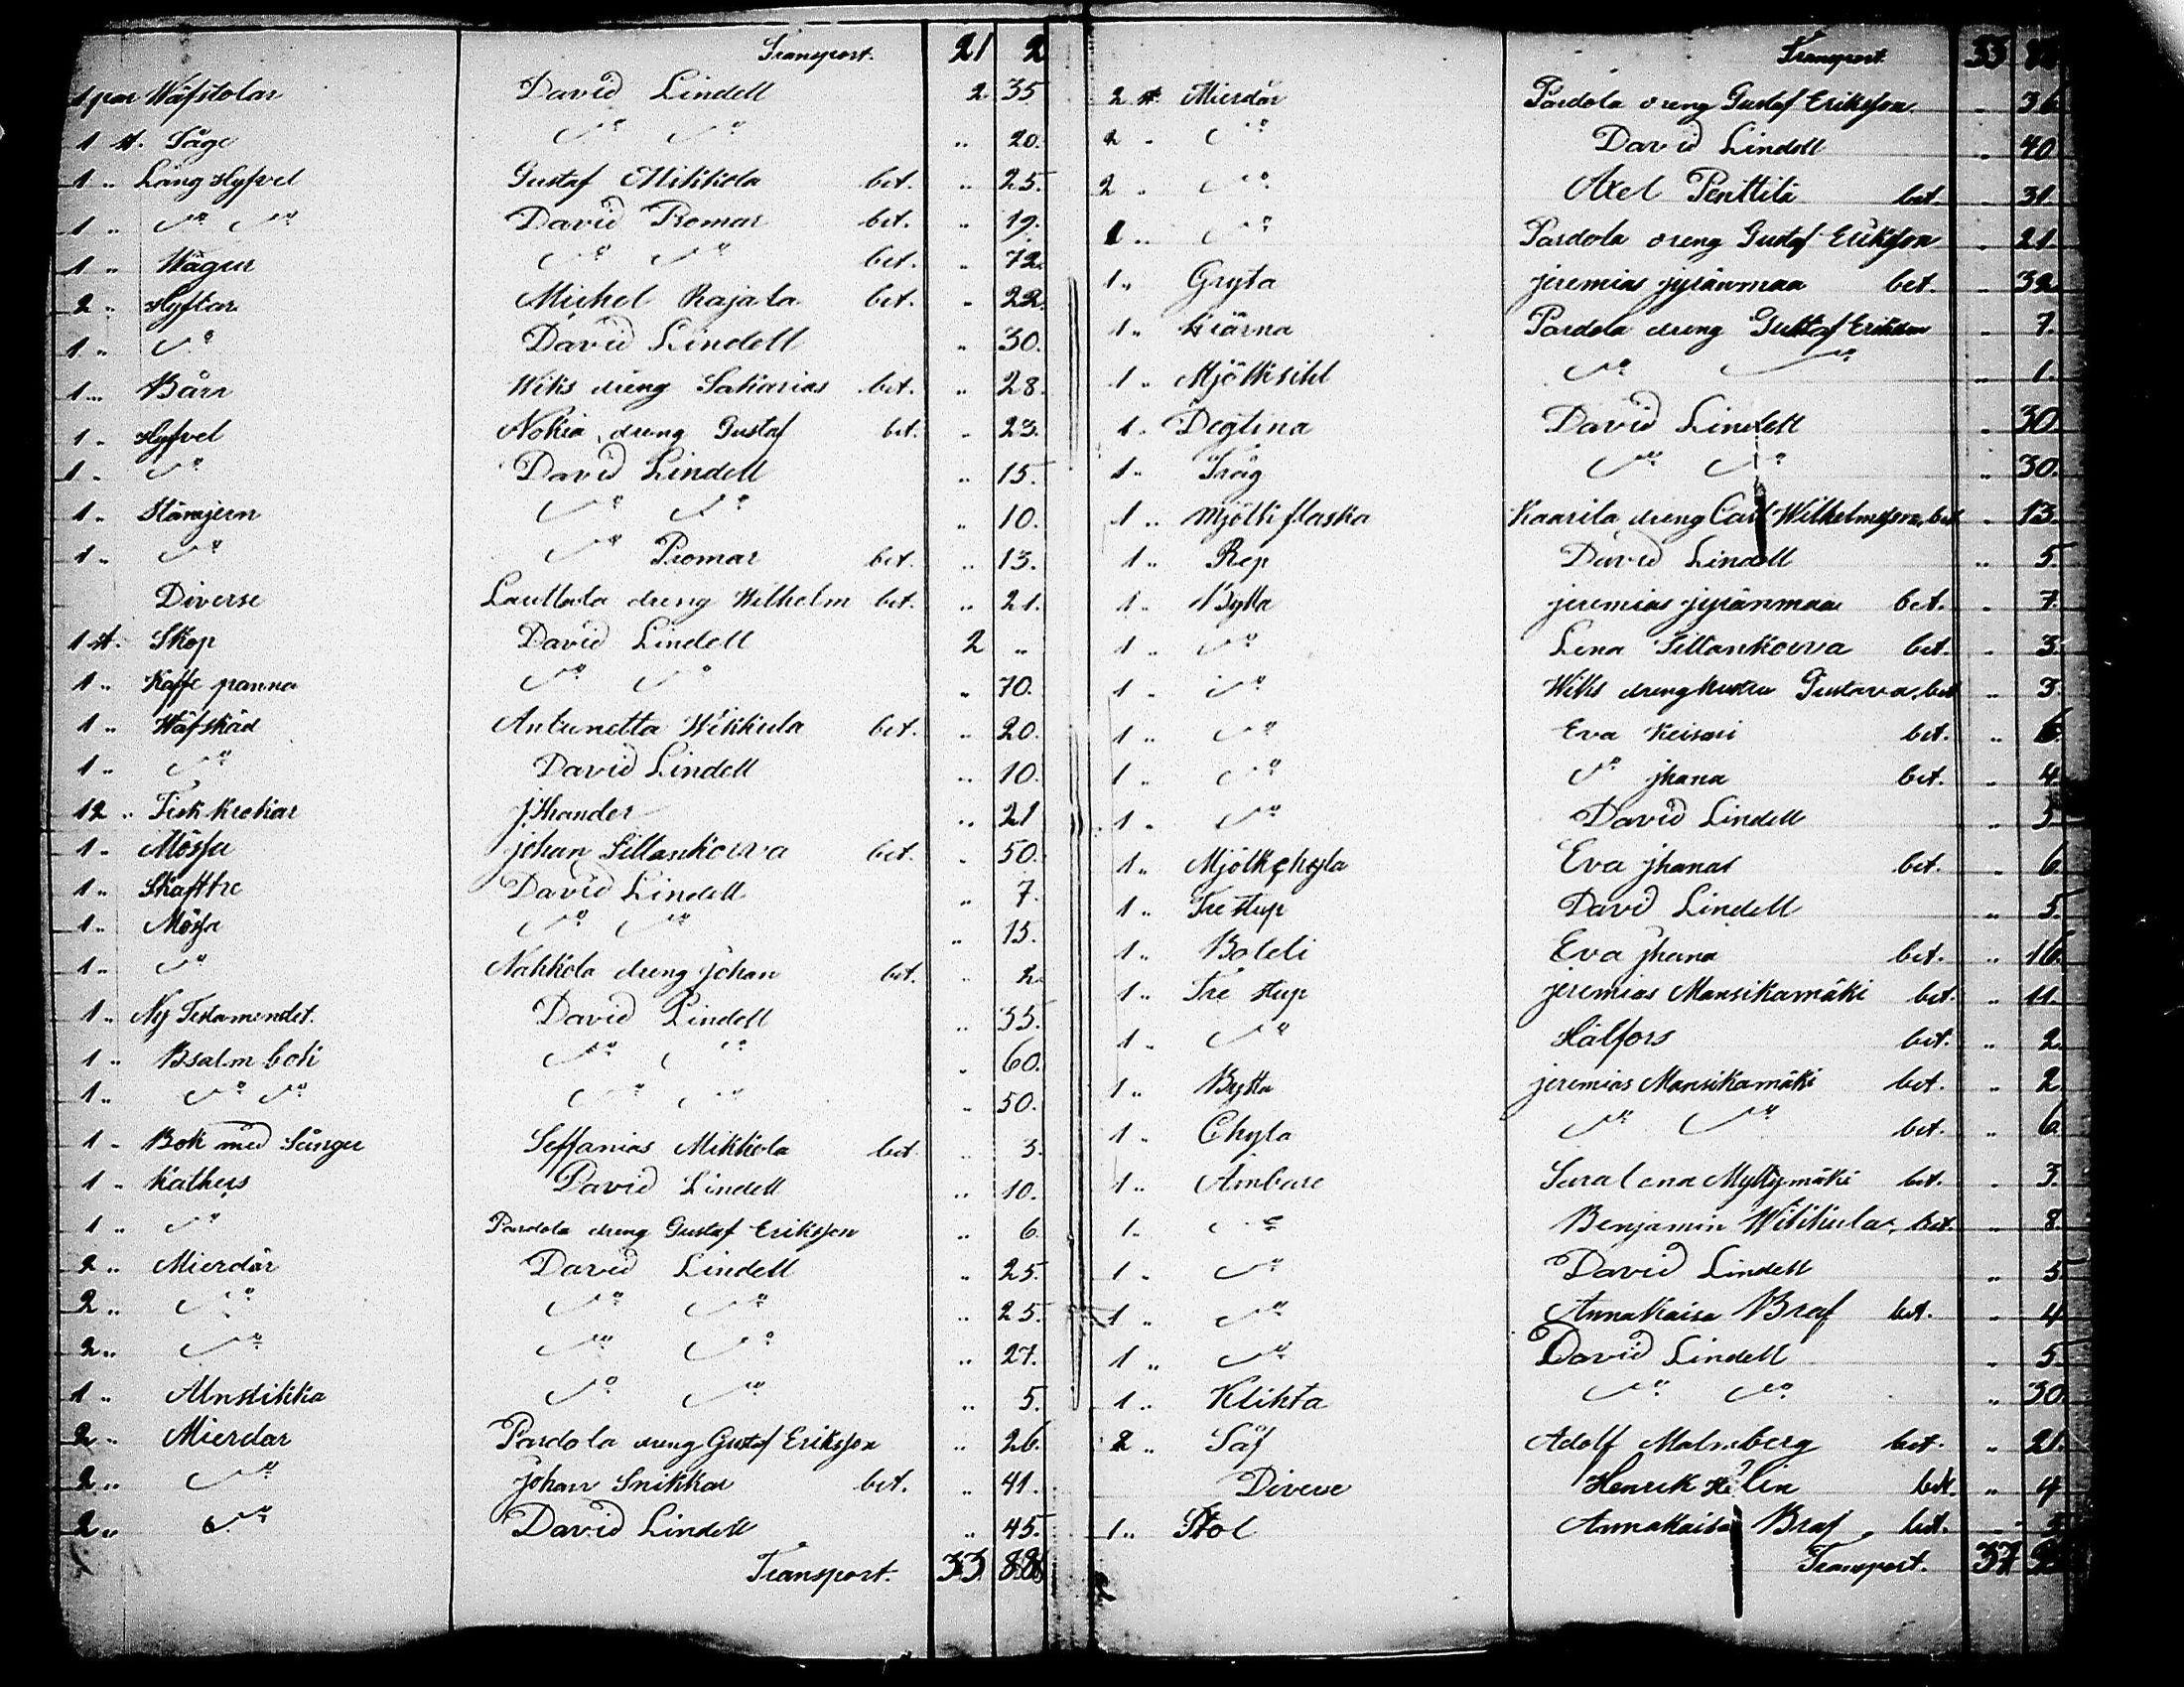 Transport. 21 2
1 par Wäfstolar David Lindell 2 35
1 st. Såge do do .. 20.
1 .. Lång Hyfvel Gustaf Mikkola bet. .. 25.
1 .. do do David Romar bet. .. 19.
1 .. Wågur do do bet. .. 72.
2 .. Hyflar Michel Rajala bet. .. 22.
1 .. do David Lindell .. 30.
1 .. Bårr Wiks dreng Sakarias bet. .. 28.
1 .. Hyfvel Nokia dreng Gustaf bet. .. 23.
1 .. do David Lindell .. 15.
1 .. Stämjern do do .. 10.
1 .. do do Romar bet. .. 13.
Diverse Lauttala dreng Wilhelm bet. .. 21.
1 st. Skop David Lindell 2 ..
1 .. Kaffe panna do do .. 70.
1 .. Wäfskäd Antunetta Wikkula bet. .. 20.
1 .. do David Lindell .. 10.
12 .. Fisk krokar J. Ihander .. 21
1 .. Mössa johan Sillankorva bet. .. 50.
1 .. Skafttre David Lindell .. 7.
1 .. Mössa do do .. 15.
1 .. do Nahkola dreng johan bet. .. 2.
1 .. Ny Testamendet. David Lindell .. 35.
1 .. Psalm bok do do .. 60.
1 .. do do do do .. 50.
1 .. Bok med Sånger Seffanias Mikkola bet .. 3.
1 .. Kathes David Lindell .. 10.
1 .. do Pardola dreng Gustaf Eriksson .. 6.
2 .. Mierdår David Lindell .. 25.
2 .. do do do .. 25.
2 .. do do do .. 27.
1 .. Alnstikka do do .. 5.
2 .. Mierdar Pardola dreng Gustaf Eriksson .. 26.
2 .. do Johan Snikkar bet. .. 41.
2 .. do David Lindell .. 45.
Transport. 33. 88
Transport 33 88
2 st Mierdår Pardola dreng Gustaf Eriksson .. 36
2 .. do David Lindell .. 40
2 .. do Axel Penttilä bet. .. 31
1 .. do Pardola dreng Gustaf Eriksson .. 21
1 .. Gryta jeremias jyränmaa bet. .. 32
1 .. Kiärna Pardola dreng Gustaf Eriksson .. 7.
1 .. Mjölksihl do do .. 1.
1 .. Degtina David Lindell .. 30.
1 .. Tråg do do .. 30.
1 .. Mjölkflaska Kaarila dreng Carl Wilhelmsson, bet .. 13.
1 .. Rep David Lindell .. 5.
1 .. Bytta jeremias jyränmaa bet. .. 7.
1 .. do Lena Sillankorva bet. .. 3.
1 .. do Wiks dreng hustru Gustava, bet .. 3.
1 .. do Eva Keisari bet. .. 6.
1 .. do do jhana bet. .. 4.
1 .. do David Lindell .. 5
1 .. Mjölkchyla Eva jhanat bet. .. 6.
1 .. Tre stup David Lindell .. 5.
1 .. Boteli Eva jhana bet. .. 16.
1 .. Tre stup jeremias Mansikamäki bet. .. 11.
1 .. do Hälfors bet. .. 2.
1 .. Bytta jeremias Mansikamäki bet. .. 2.
1 .. Chyla do do bet. .. 6.
1 .. Ämbare Saralena Myllymäki bet. .. 3.
1 .. do Benjamin Wikkula, bet. .. 8.
1 .. do David Lindell .. 5.
1 .. do Annakaisa Braf bet. .. 4
1 .. do David Lindell .. 5.
1 .. Klikta do do .. 30.
2 .. Såf Adolf Malmberg bet. .. 21.
Diverse Henrik Helin bet. .. 4
1 .. Stol Annakaisa Braf, bet. .. 5
Transport. 37